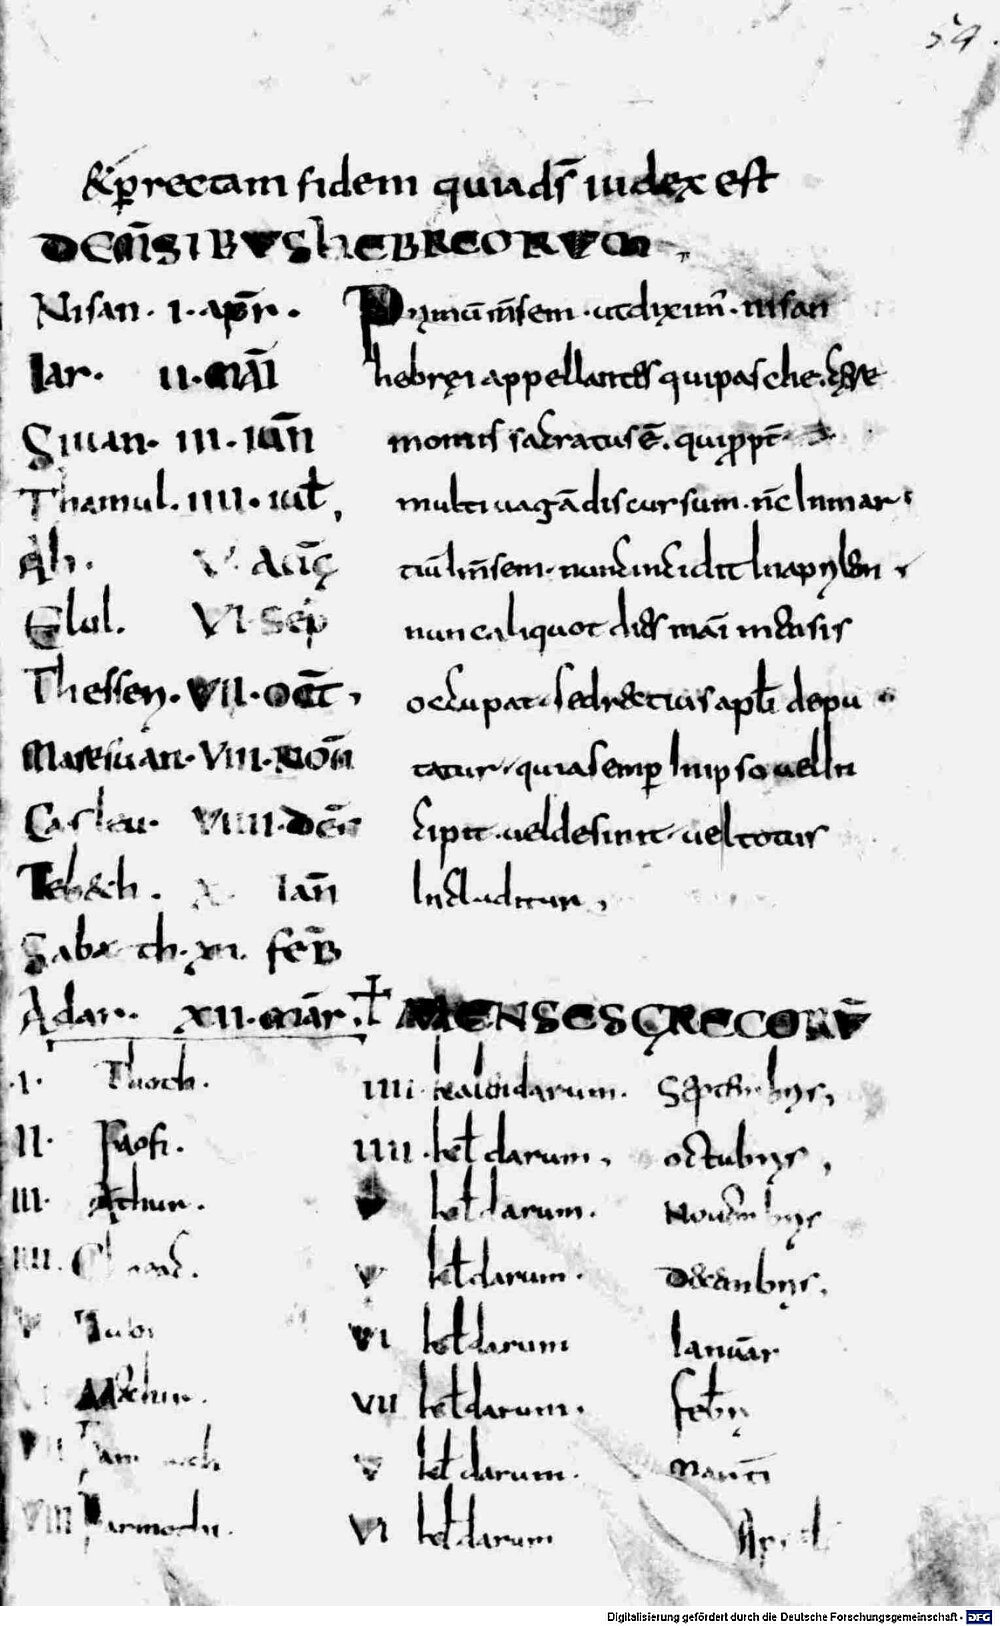 54.
& p̱rectam fidem quia ds̄ iudex est
DE M̄SIBUS HEBREORUM
Nisan · I · apr̄ ·
Iar · II · MAĪ
Siuan · III · IUN̄
Thamul · IIII · iuł,
Ab. V AUḠ
Elul. VI Sep̄
Thesseri · VII · OCT̄,
Maresuan · VIII · NOŪ
Casleu · VIIII · DEC̄
Tebeth · X IAN̄
Sabath · XI · FEB̄
Adar · XII · mār ·
Primū m̄sem · ut diximꝰ · nisan
hebrei appellantes qui paschę
montis sacratus ē. qui ꝓpt̄
multiuagā discursum · nc̄ In mar
tiū m̄sem · nunc incidit In aprilem,
nunc aliquot dies maī mensis
occupat · sed rectius aprł depu
tatur, quia semp̱ In ipso uel In
cipit · uel desinit, uel totus
Includitur,
MENSES GRECORŪ
· I · Thoth · IIII · kalendarum · Septembris,
II · Faofi · IIII · keł darum, octubris,
III · Athur · V keł darum · Nouembris
IIII. V keł darum · Decembris,
V Tubi VI keł darum Ianuār
Mechir. VII keł darum · febr
VII V keł darum · Martī
VIII Parmothi · VI keł darum
Digitalisierung gefördert durch die Deutsche Forschungsgemeinschaft - DFG